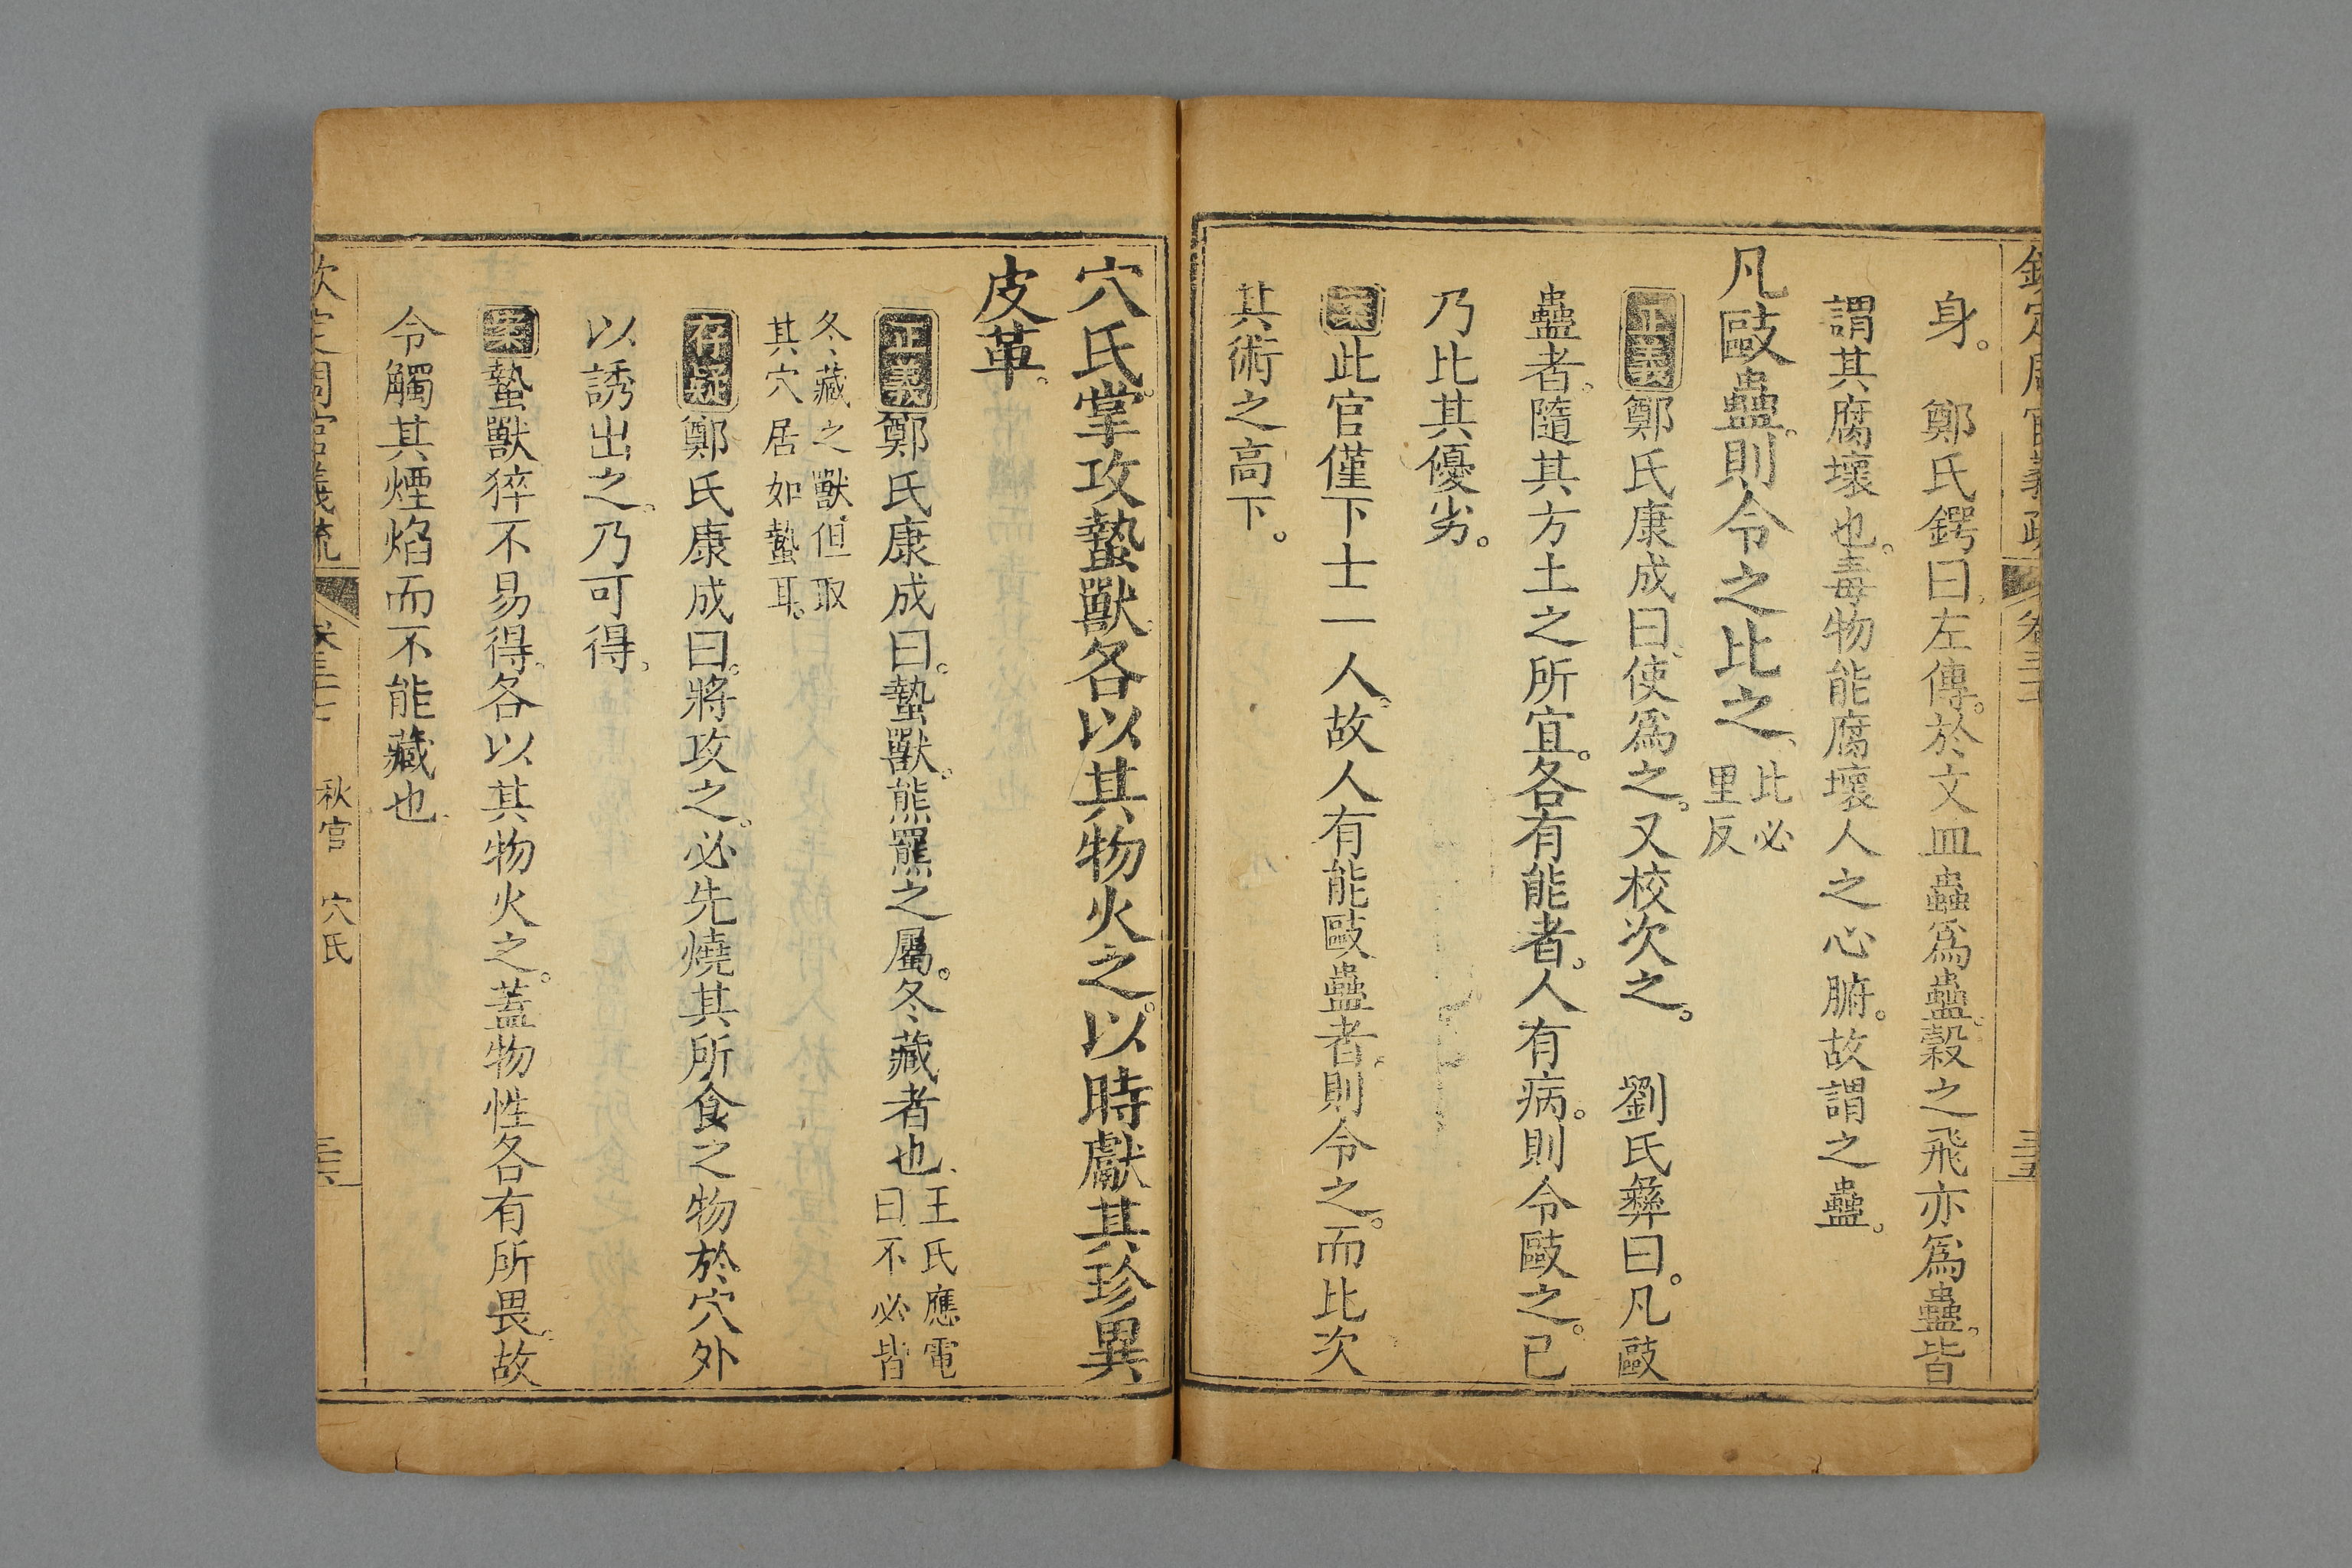 欽定周官義疏 卷三十七 三五
身。 鄭氏鍔曰左傳。於文皿蟲爲蠱。穀之飛亦爲蠱。皆
謂其腐壞也。毒物能腐壞人之心腑。故謂之蠱。
凡毆蠱。則令之比之。比必
里反
正義鄭氏康成曰。使爲之。又校次之。 劉氏彝曰。凡毆
蠱者。隨其方土之所宜。各有能者。人有病。則令毆之。已
乃比其優劣。
案此官僅下士一人。故人有能毆蠱者。則令之。而比次
其術之高下。
穴氏。掌攻蟄獸。各以其物火之。以時獻其珍異
皮革。
正義鄭氏康成曰。蟄獸。熊羆之屬。冬藏者也。王氏應電
曰不必皆
冬藏之獸。但取
其穴居如蟄耳。
存疑鄭氏康成曰。將攻之。必先燒其所食之物於穴外
以誘出之。乃可得。
案蟄獸猝不易得。各以其物火之。蓋物性各有所畏。故
令觸其煙焰而不能藏也。
欽定周官義疏 卷三十七 秋官 穴氏 三六